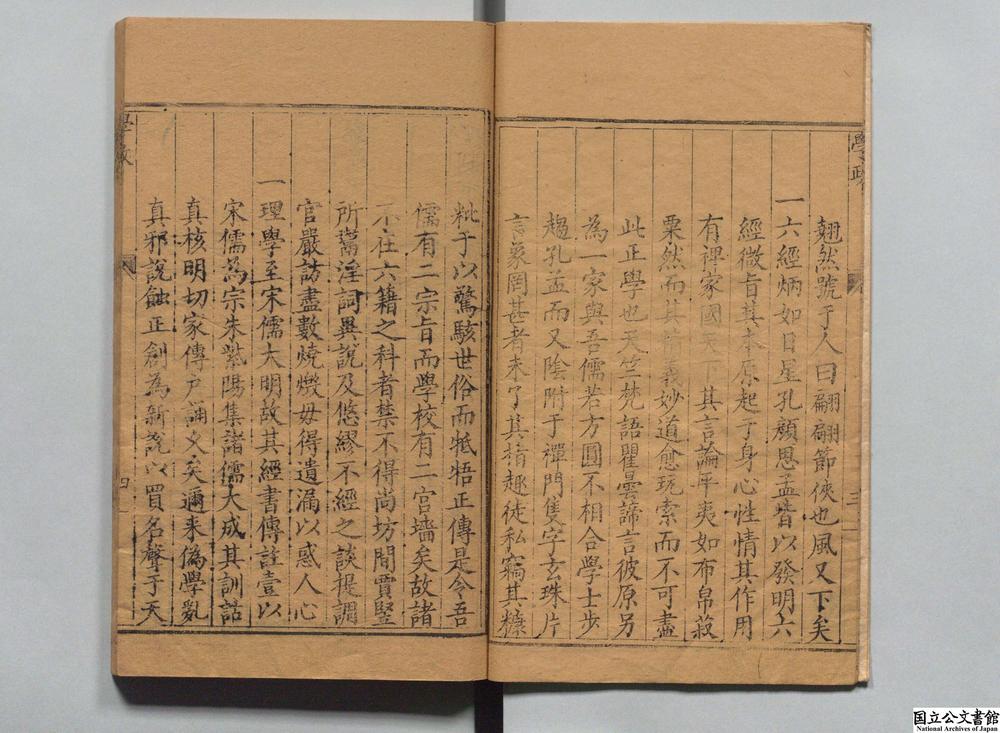 翹然號于人曰翩翩節俠也風又下矣
一六經炳如日星孔顏思孟皆以發明六
經微旨其本原起于身心性情其作用
有裨家國天下其言論平夷如布帛菽
粟然而其精義妙道愈玩索而不可盡
此正學也天竺梵語瞿曇諦言彼原另
為一家與吾儒若方圓不相合學士步
趨孔孟而又陰附于禪門隻字玄珠片
言象罔甚者未了其指趣徒私竊其糠
粃于以驚駭世俗而牴牾正傳是令吾
儒有二宗旨而學校有二宮墻矣故諸
不在六籍之科者禁不得尚坊間賈豎
所鬻淫詞異說及悠繆不經之談提調
官嚴訪盡數燒燬毋得遺漏以惑人心
一理學至宋儒大明故其經書傳註壹以
宋儒為宗朱紫陽集諸儒大成其訓詁
真核明切家傳戶誦久矣邇來偽學亂
真邪說蝕正創為新說以買名聲于天
學政
三
學政
四
国立公文書館
National Archives of Japan